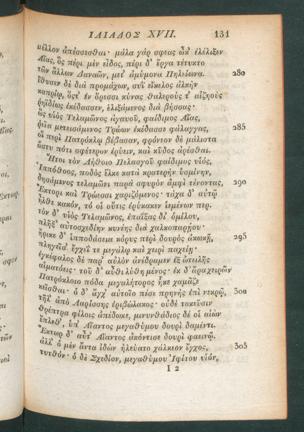 ΙΛΙΑΔΟΣ XVII. 131
μέλλον ἀπέσσεσθαι· μάλα γάρ σφεας ὦκ' ἐλέλιξεν
Αἴας, ὃς πέρι μὲν εἶδος, πέρι δ' ἔργα τέτυκτο
τῶν ἄλλων Δαναῶν, μετ' ἀμύμονα Πηλείωνα. 280
ἴθυσεν δὲ διὰ προμάχων, συῒ εἴκελος ἀλκὴν
καπρίῳ, ὅστ' ἐν ὄρεσσι κύνας θαλερούς τ' αἰζηοὺς
ῥηϊδίως ἐκέδασσεν, ἑλιξάμενος διὰ βήσσας·
ὣς υἱὸς Τελαμῶνος ἀγαυοῦ, φαίδιμος Αἴας,
ῥεῖα μετεισάμενος Τρώων ἐκέδασσε φάλαγγας, 285
οἳ περὶ Πατρόκλῳ βέβασαν, φρόνεον δὲ μάλιστα
ἄστυ πότι σφέτερον ἐρύειν, καὶ κῦδος ἀρέσθαι.
Ἤτοι τὸν Λήθοιο Πελασγοῦ φαίδιμος υἱὸς,
Ἱππόθοος, ποδὸς ἕλκε κατὰ κρατερὴν ὑσμίνην,
δησάμενος τελαμῶνι παρὰ σφυρὸν ἀμφὶ τένοντας, 290
Ἕκτορι καὶ Τρώεσσι χαριζόμενος· τάχα δ' αὐτῷ
ἦλθε κακὸν, τό οἱ οὔτις ἐρύκακεν ἱεμένων περ.
τὸν δ' υἱὸς Τελαμῶνος, ἐπαΐξας δι' ὁμίλου,
πλῆξ' αὐτοσχεδίην κυνέης διὰ χαλκοπαρῄου·
ἤρικε δ' ἱπποδάσεια κόρυς περὶ δουρὸς ἀκωκῇ, 295
πληγεῖσ' ἔγχεΐ τε μεγάλῳ καὶ χειρὶ παχείῃ·
ἐγκέφαλος δὲ παρ' αὐλὸν ἀνέδραμεν ἐξ ὠτειλῆς
αἱματόεις· τοῦ δ' αὖθι λύθη μένος· ἐκ δ' ἄρα χειρῶν
Πατρόκλοιο πόδα μεγαλήτορος ἧκε χαμᾶζε
κεῖσθαι· ὁ δ' ἄγχ' αὐτοῖο πέσε πρηνὴς ἐπὶ νεκρῷ, 300
τῆλ' ἀπὸ Λαρίσσης ἐριβώλακος· οὐδὲ τοκεῦσιν
θρέπτρα φίλοις ἀπέδωκε, μινυνθάδιος δέ οἱ αἰὼν
ἔπλεθ', ὑπ' Αἴαντος μεγαθύμου δουρὶ δαμέντι.
Ἕκτωρ δ' αὖτ' Αἴαντος ἀκόντισε δουρὶ φαεινῷ.
ἀλλ' ὁ μὲν ἄντα ἰδὼν ἠλεύατο χάλκεον ἔγχος, 305
τυτθόν· ὁ δὲ Σχεδίον, μεγαθύμου Ἰφίτου υἱὸν,
I 2